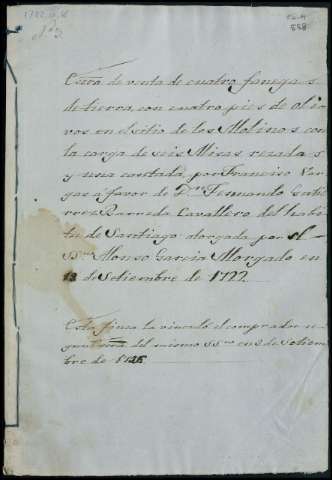 Escrā de venta de cuatro fanegas
de tierra, con cuatro pies de oliv
vos en el sitio de los Molinos con
la carga de seis Misas rezadas
y una cantada, por Francisco Var
gas á favor de D.n Fernando Gutie
rrez Barneda Cavallero del habi
to de Santiago otorgada por el
SS.no Alonso Garcia Morgado en
13 de Setiembre de 1722
Esta finca la vinculó el comprador se
gun del mismo SS.no en 2 de Setiem
bre de